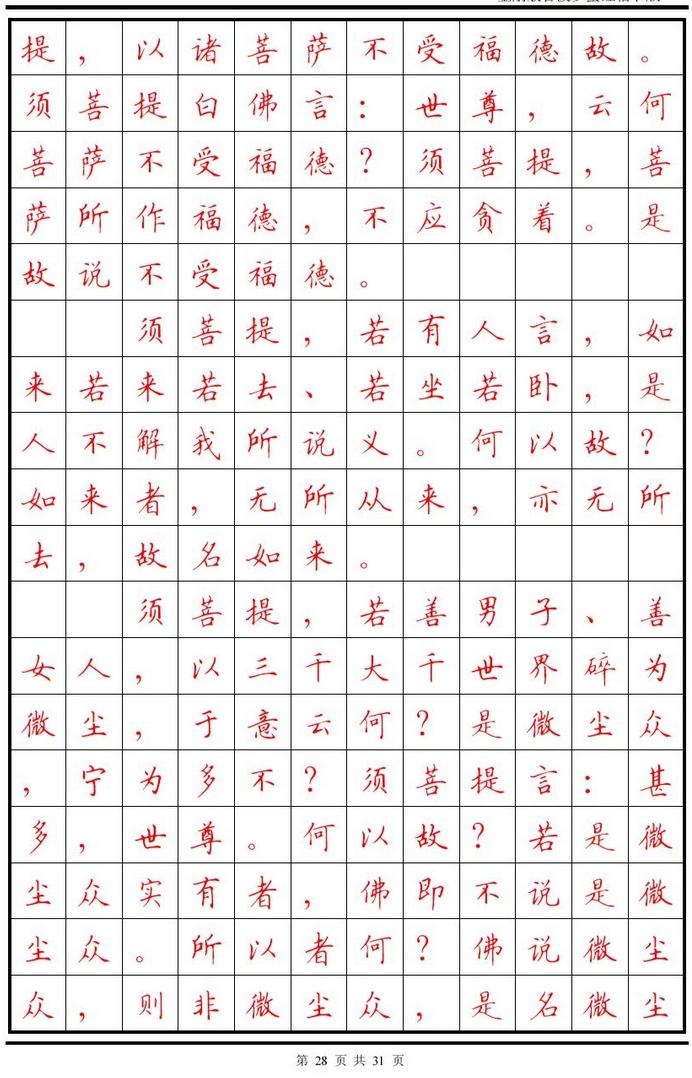 提，以诸菩萨不受福德故。
须菩提白佛言：世尊，云何
菩萨不受福德？须菩提，菩
萨所作福德，不应贪着。是
故说不受福德。
须菩提，若有人言，如
来若来若去、若坐若卧，是
人不解我所说义。何以故？
如来者，无所从来，亦无所
去，故名如来。
须菩提，若善男子、善
女人，以三千大千世界碎为
微尘，于意云何？是微尘众
，宁为多不？须菩提言：甚
多，世尊。何以故？若是微
尘众实有者，佛即不说是微
尘众。所以者何？佛说微尘
众，则非微尘众，是名微尘
第 28 页 共 31 页